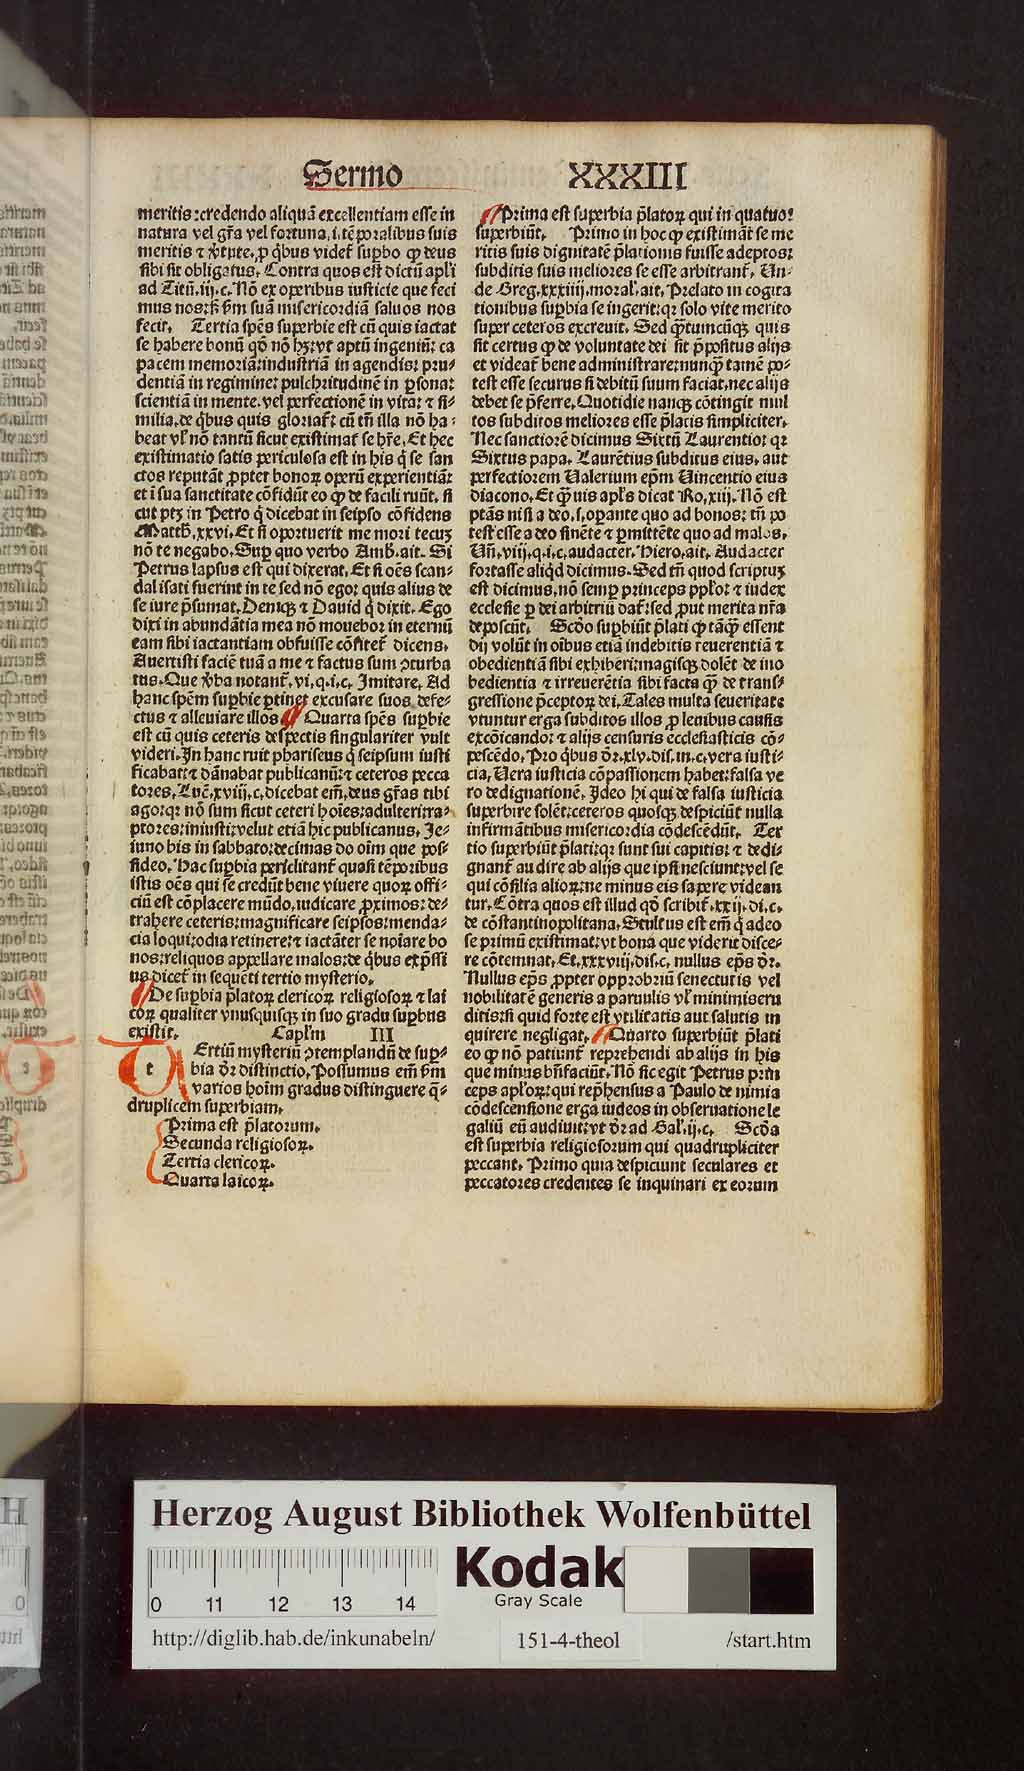 Sermo XXXIII
meritis: credendo aliquã excellentiam esse in
natura vel gr̃a vel fortuna, i. tẽporalibus suis
meritis ⁊ ꝟtute, ꝓ q̇bus videt᷑ supbo ꝙ deus
sibi sit obligatus. Contra quos est dictũ apl'i
ad Titũ. iij. c. Nõ ex operibus iusticie que feci
mus nos: sꝫ ẜm suã misericordiã saluos nos
fecit. Tertia spẽs superbie est cũ quis iactat
se habere bonũ qđ nõ hꝫ: vt aptũ ingeniũ: ca
pacem memoriã: industriã in agendis: pru-
dentiã in regimine: pulchritudinẽ in ꝑsona:
scientiã in mente. vel perfectionẽ in vita: ⁊ si-
milia. de q̇bus quis gloriat᷑: cũ tñ illa nõ ha-
beat vl' nõ tantũ sicut existimat se hr̃e. Et hec
existimatio satis periculosa est in his q̇ se san
ctos reputãt ꝓpter bonoꝝ operũ experientiã:
et ĩ sua sanctitate cõfidũt eo ꝙ de facili ruũt. si
cut ptꝫ in Petro q̇ dicebat in seipso cõfidens
Matth. xxvi. Et si oportuerit me mori tecuꝫ
nõ te negabo. Suꝑ quo verbo Amb. ait. Si
Petrus lapsus est qui dixerat. Et si oẽs scan-
dalisati fuerint in te sed nõ ego: quis alius de
se iure p̃sumat. Deniqꝫ ⁊ Dauid q̇ dixit. Ego
dixi in abundãtia mea nõ mouebor in eternũ
eam sibi iactantiam obfuisse cõfitet᷑ dicens.
Auertisti faciẽ tuã a me ⁊ factus sum ꝯturba
tus. Que ꝟba notant᷑. vi. q. i. c. Imitare. Ad
hanc spẽm supbie ꝑtinet excusare suos defe-
ctus ⁊ alleuiare illos Quarta spẽs supbie
est cũ quis ceteris despectis singulariter vult
videri. In hanc ruit phariseus q̇ seipsum iusti
ficabat: ⁊ dãnabat publicanũ: ⁊ ceteros pecca
tores. Luc̃. xviij. c. dicebat em̃. deus gr̃as tibi
ago: qꝛ nõ sum sicut ceteri hoĩes: adulteri: ra-
ptores: iniusti: velut etiã hic publicanus. Je-
iuno bis in sabbato: decimas do oĩm que pos-
sideo. Hac supbia periclitant᷑ quasi tẽporibus
istis oẽs qui se credũt bene viuere quoꝝ offi-
ciũ est cõplacere mũdo, iudicare ꝓximos: de-
trahere ceteris: magnificare seipsos: menda-
cia loqui: odia retinere: ⁊ iactãter se noĩare bo
nos: reliquos appellare malos: de q̇bus exp̃ssi
us dicet᷑ in sequẽti tertio mysterio.
De supbia p̃latoꝝ clericoꝝ religiosoꝝ ⁊ lai
coꝝ qualiter vnusquisqꝫ in suo gradu supbus
existit. Capl'm III
t Ertiũ mysteriũ ꝯtemplandũ de suꝑ-
bia dr̃ distinctio. Possumus em̃ ẜm
varios hoĩm gradus distinguere q̃-
druplicem superbiam.
Prima est p̃latorum.
Secunda religiosoꝝ.
Tertia clericoꝝ.
Quarta laicoꝝ.
Prima est superbia p̃latoꝝ qui in quatuor
superbiũt. Primo in hoc ꝙ existimãt se me
ritis suis dignitatẽ p̃lationis fuisse adeptos:
subditis suis meliores se esse arbitrant᷑. Un-
de Greg. xxxiiij. moral'. ait. Prelato in cogita
tionibus supbia se ingerit: qꝛ solo vite merito
super ceteros excreuit. Sed q̃ntumcũqꝫ quis
sit certus ꝙ de voluntate dei sit p̃positus alijs
et videat᷑ bene administrare: nunq̃ tamẽ po-
test esse securus si debitũ suum faciat, nec alijs
debet se p̃ferre. Quotidie nanqꝫ cõtingit mul
tos subditos meliores esse p̃latis simpliciter.
Nec sanctiorẽ dicimus Sixtũ Laurentio: qꝛ
Sixtus papa. Laurẽtius subditus eius. aut
perfectiorem Ualerium ep̃m Uincentio eius
diacono. Et q̃uis apl's dicat Ro. xiij. Nõ est
ptãs nisi a deo. s. oꝑante quo ad bonos: tñ po
test esse a deo sinẽte ⁊ ꝑmittẽte quo ad malos.
Uñ. viij. q. i. c. audacter. Hiero. ait. Audacter
fortasse aliq̇d dicimus. Sed tñ quod scriptuꝫ
est dicimus, nõ semꝑ princeps pplo⁊ ⁊ iudex
ecclesie ꝑ dei arbitriũ dat᷑: sed ꝓut merita nr̃a
deposcũt. Scđo supbiũt p̃lati ꝙ tãq̃ essent
dij volũt in oĩbus etiã indebitis reuerentiã ⁊
obedientiã sibi exhiberi: magisqꝫ dolẽt de ino
bedientia ⁊ irreuerẽtia sibi facta q̃ de trans-
gressione p̃ceptoꝝ dei. Tales multa seueritate
vtuntur erga subditos illos ꝓ leuibus causis
excõicando: ⁊ alijs censuris ecclesiasticis cõ-
pescẽdo. Pro q̇bus dr̃. xlv. dis. in. c. vera iusti-
cia. Uera iusticia cõpassionem habet: falsa ve
ro dedignationẽ. Ideo hi qui de falsa iusticia
superbire solẽt: ceteros quosqꝫ despiciũt nulla
infirmãtibus misericordia cõdescẽdũt. Ter
tio superbiũt p̃lati: qꝛ sunt sui capitis: ⁊ dedi-
gnant᷑ audire ab alijs que ipsi nesciunt: vel se
qui cõsilia alioꝝ: ne minus eis sapere videan
tur. Cõtra quos est illud qđ scribit᷑. xxij. di. c.
de cõstantinopolitana. Stultus est em̃ q̇ adeo
se primũ existimat: vt bona que viderit disce-
re cõtemnat. Et. xxxviij. dis. c. nullus ep̃s dr̃.
Nullus ep̃s ꝓpter opprobriũ senectutis vel
nobilitatẽ generis a paruulis vl' minimis eru
ditis: si quid forte est vtilitatis aut salutis in
quirere negligat. Quarto superbiũt p̃lati
eo ꝙ nõ patiunt᷑ reprehendi ab alijs in his
que minus bñ faciũt. Nõ sic egit Petrus prin
ceps apl'oꝝ: qui rep̃hensus a Paulo de nimia
cõdescensione erga iudeos in obseruatione le
galiũ eũ audiuit: vt dr̃ ad Gal'. ij. c. Scđa
est superbia religiosorum qui quadrupliciter
peccant. Primo quia despiciunt seculares et
peccatores credentes se inquinari ex eorum
Herzog August Bibliothek Wolfenbüttel
Kodak
Gray Scale
0 11 12 13 14
http://diglib.hab.de/inkunabeln/ 151-4-theol /start.htm